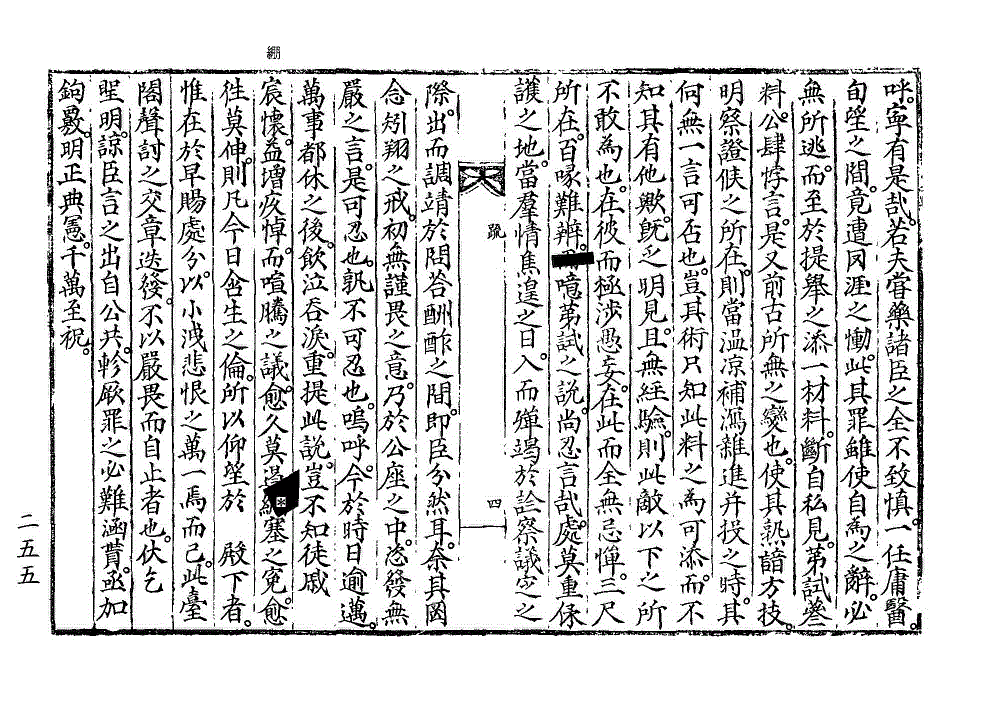 繃
呼。寧有是哉。若夫嘗藥諸臣之全不致愼。一任庸醫。
自䂓之間。竟遭罔涯之慟。此其罪雖使自爲之辭。必
無所逃。而至於提擧之添一材料。斷自私見。第試叅
料。公肆悖言。是又前古所無之變也。使其熟諳方技。
明察證候之所在。則當温凉補瀉雜進并投之時。其
何無一言可否也。豈其術只知此料之爲可添。而不
知其有他歟。旣乏明見。且無經驗。則此敵以下之所
不敢爲也。在彼而極涉愚妄。在此而全無忌憚。三尺
所在。百喙難辨。噫第試之說。尙忍言哉。處莫重保
護之地。當羣情焦遑之日。入而殫竭於診察議定之
疏
四
際。出而調靖於問答酬酢之間。卽臣分然耳。奈其罔
念矧翔之戒。初無謹畏之意。乃於公座之中。恣發無
嚴之言。是可忍也。孰不可忍也。嗚呼。今於時日逾邁。
萬事都休之後。飮泣呑淚。重提此說。豈不知徒戚
宸懷。益增疚悼。而喧騰之議。愈久莫遏。塞之寃。愈
徃莫伸。則凡今日含生之倫。所以仰望於 殿下者。
惟在於早賜處分。以小洩悲恨之萬一焉而已。此臺
閣聲討之交章迭發。不以嚴畏而自止者也。伏乞
聖明。諒臣言之出自公共。軫厥罪之必難涵貰。亟加
鉤覈。明正典憲。千萬至祝。
二五五